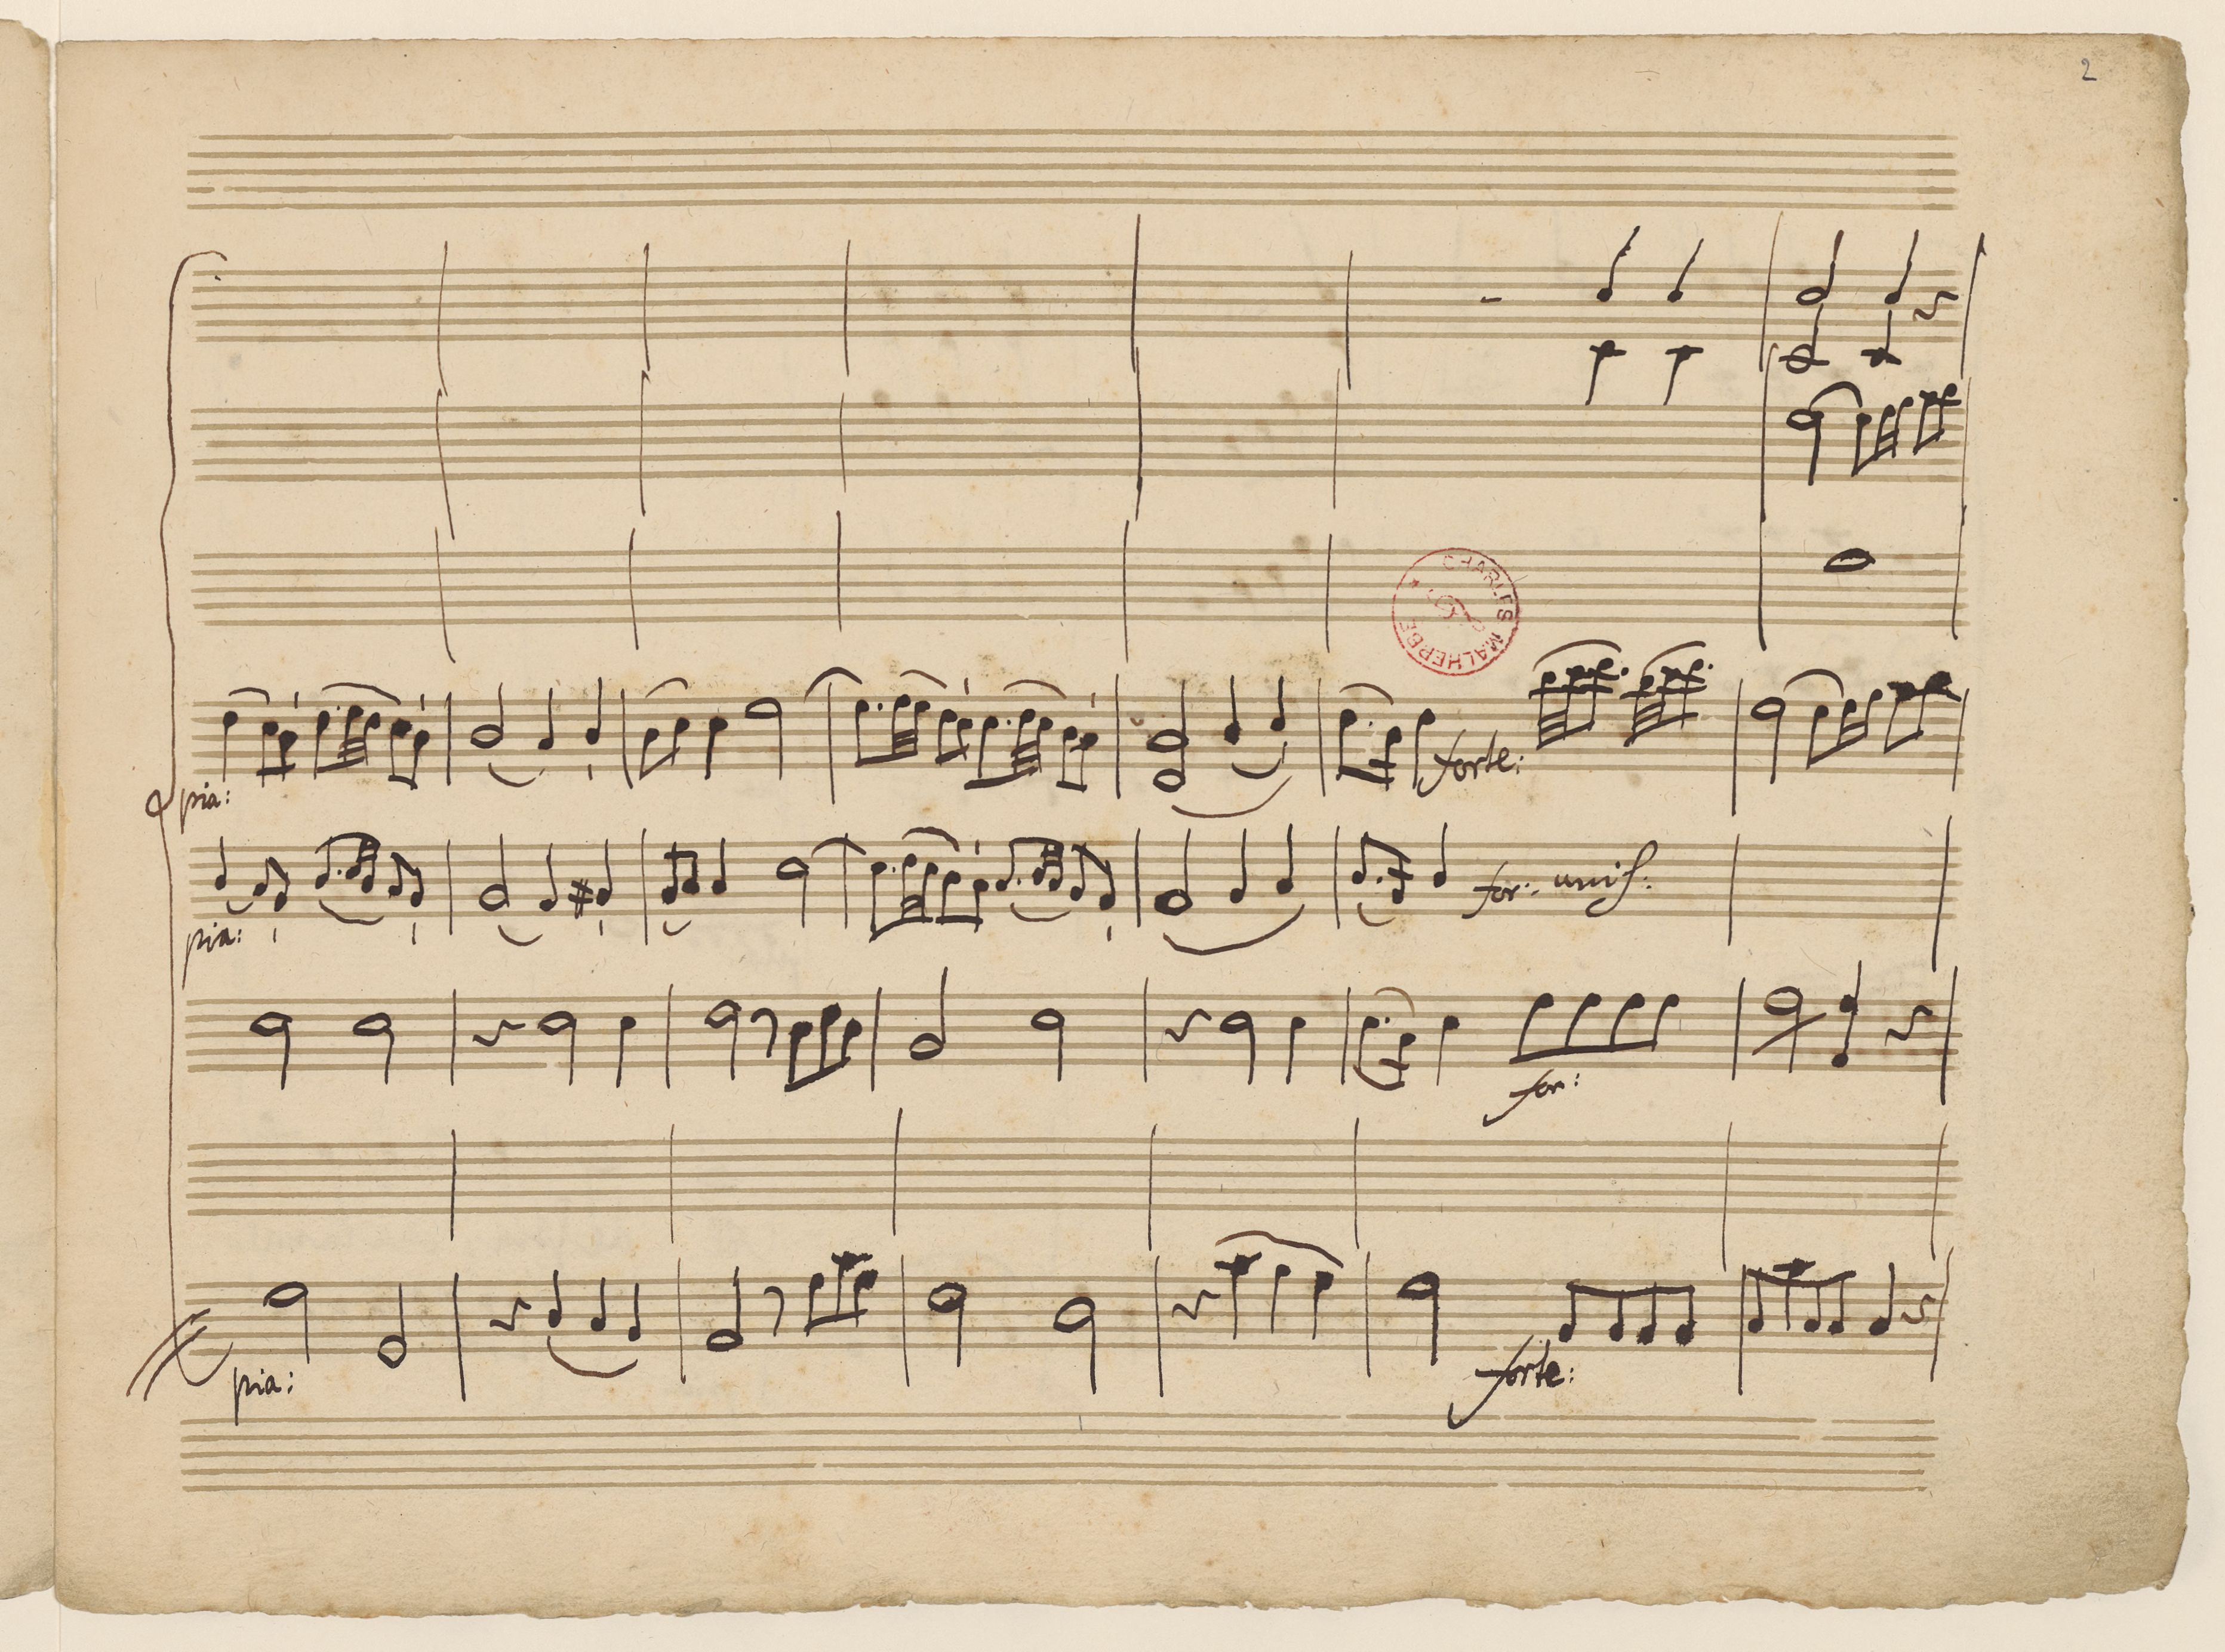 2
CHARLES MALHERBE
pia:
forte:
pia:
for: unis:
for:
pia:
forte: